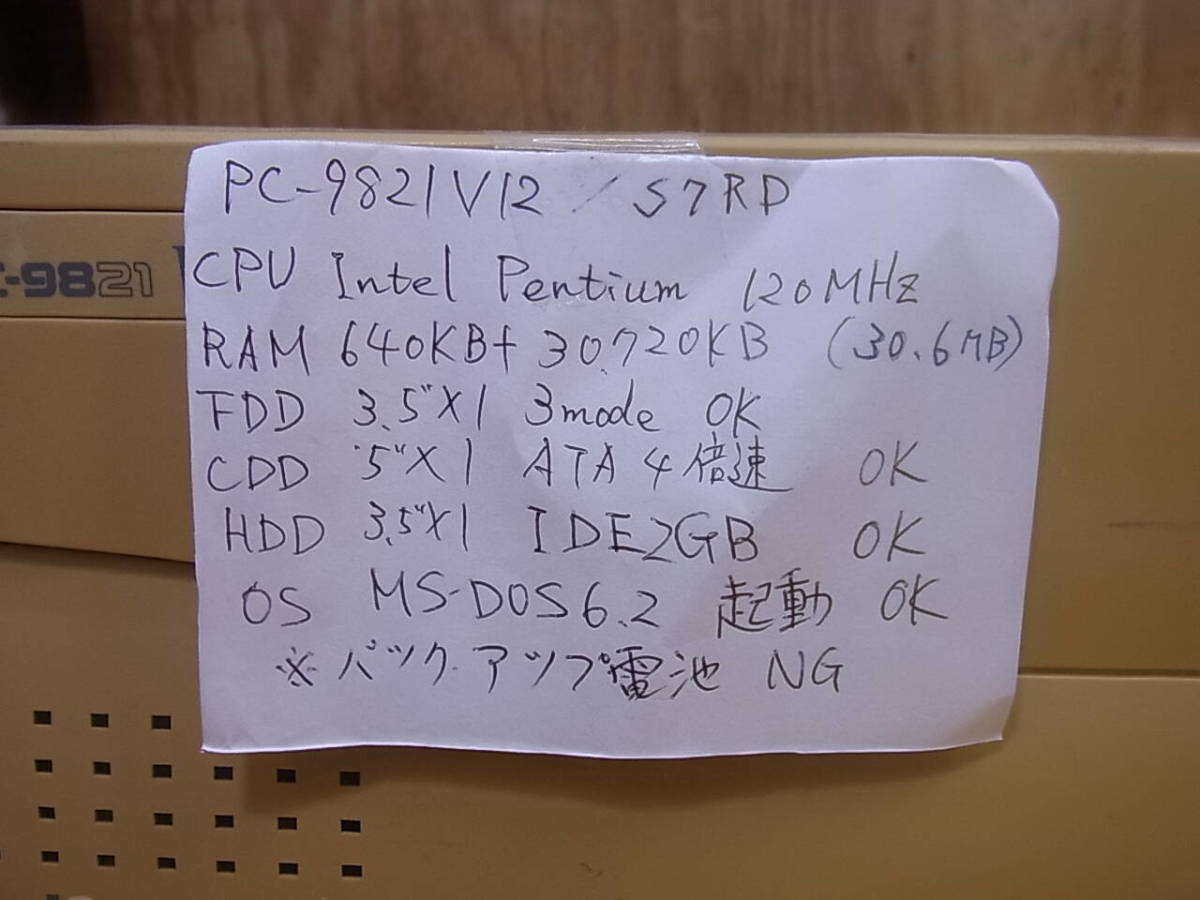 PC-9821V12 / S7RD
-9821
CPU Intel Pentium 120MHz
RAM 640KB+ 30.720KB (30.6MB)
FDD 3.5"X1 3mode OK
CDD 5"X1 ATA4倍速 OK
HDD 3.5"X1 IDE2GB OK
OS MS-DOS6.2 起動 OK
※バックアップ電池 NG